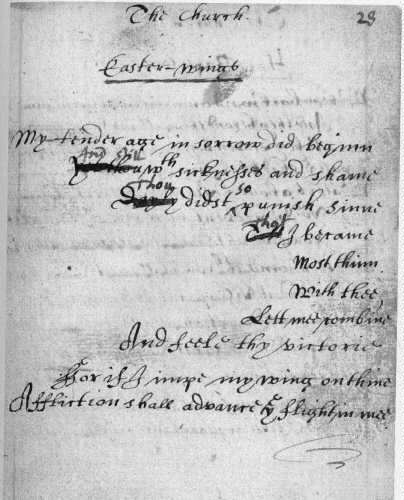 The Church. 28
Easter-wings
My tender age in sorrow did beginn
And still wth sicknesses and shame
Thou didst so punish sinne
That I became
Most thinn.
With thee
Lett mee combine
And feele thy victorie
For if I impe my wing on thine
Affliction shall advance ye flight in mee.